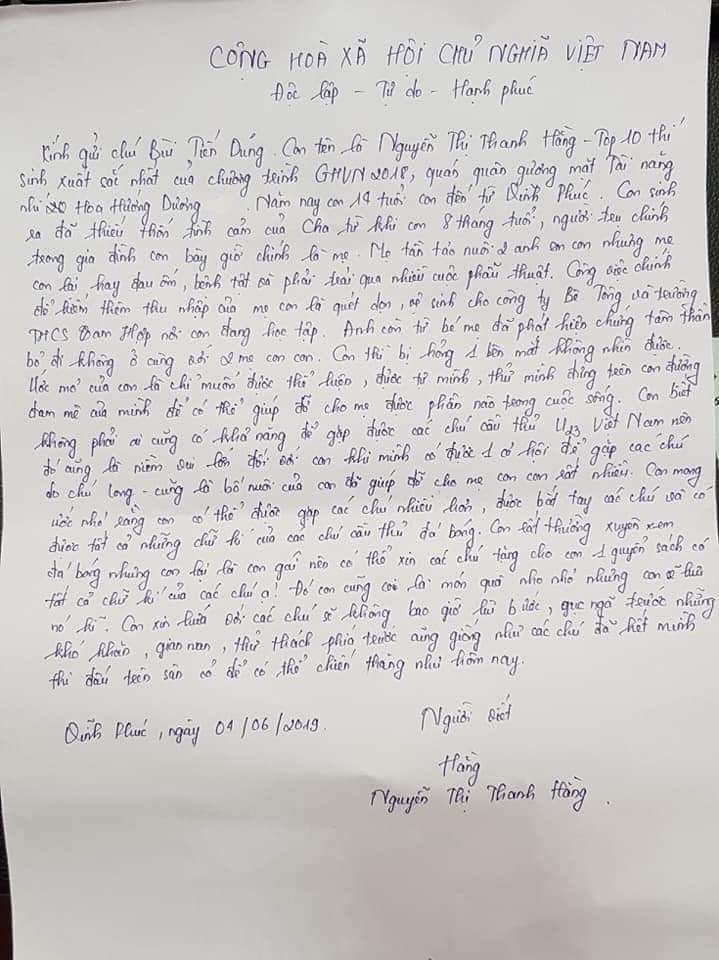 CỘNG HOÀ XÃ HỘI CHỦ NGHĨA VIỆT NAM
Độc lập - Tự do - Hạnh phúc
Kính gửi chú Bùi Tiến Dũng. Con tên là Nguyễn Thị Thanh Hằng - Top 10 thí
sinh xuất sắc nhất của chương trình GHVN 2018, quán quân gương mặt Tài năng
nhí 20 Hoa Hướng Dương. Năm nay con 14 tuổi con đến từ Vĩnh Phúc. Con sinh
ra đã thiếu thốn tình cảm của Cha từ khi con 8 tháng tuổi, người trụ chính
trong gia đình con bây giờ chính là mẹ. Mẹ tần tảo nuôi 2 anh em con nhưng mẹ
con lại hay đau ốm, bệnh tật và phải trải qua nhiều cuộc phẫu thuật. Công việc chính
để kiếm thêm thu nhập của mẹ con là quét dọn, vệ sinh cho công ty Bê Tông và trường
THCS Tam Hợp nơi con đang học tập. Anh con từ bé mẹ đã phát hiện chứng tâm thần
bỏ đi không ở cùng với 2 mẹ con con. Con thì bị hỏng 1 bên mắt không nhìn được.
Ước mơ của con là chỉ muốn được thể hiện, được tự mình, thử mình đứng trên con đường
đam mê của mình để có thể giúp đỡ cho mẹ được phần nào trong cuộc sống. Con biết
không phải ai cũng có khả năng để gặp được các chú cầu thủ U23 Việt Nam nên
đó cũng là niềm vui lớn đối với con khi mình có được 1 cơ hội để gặp các chú
do chú Long - cũng là bố nuôi của con đã giúp đỡ cho mẹ con con rất nhiều. Con mong
ước nhỏ rằng con có thể được gặp các chú nhiều hơn, được bắt tay các chú và có
được tất cả những chữ kí của các chú cầu thủ đá bóng. Con rất thường xuyên xem
đá bóng nhưng con lại là con gái nên có thể xin các chú tặng cho con 1 quyển sách có
tất cả chữ kí của các chú ạ! Đó con cũng coi là món quà nho nhỏ nhưng con sẽ lưu
nó kĩ. Con xin hứa với các chú sẽ không bao giờ lùi bước, gục ngã trước những
khó khăn, gian nan, thử thách phía trước cũng giống như các chú đã hết mình
thi đấu trên sân cỏ để có thể chiến thắng như hôm nay.
Vĩnh Phúc, ngày 04/06/2019.
Người viết
Hằng
Nguyễn Thị Thanh Hằng.